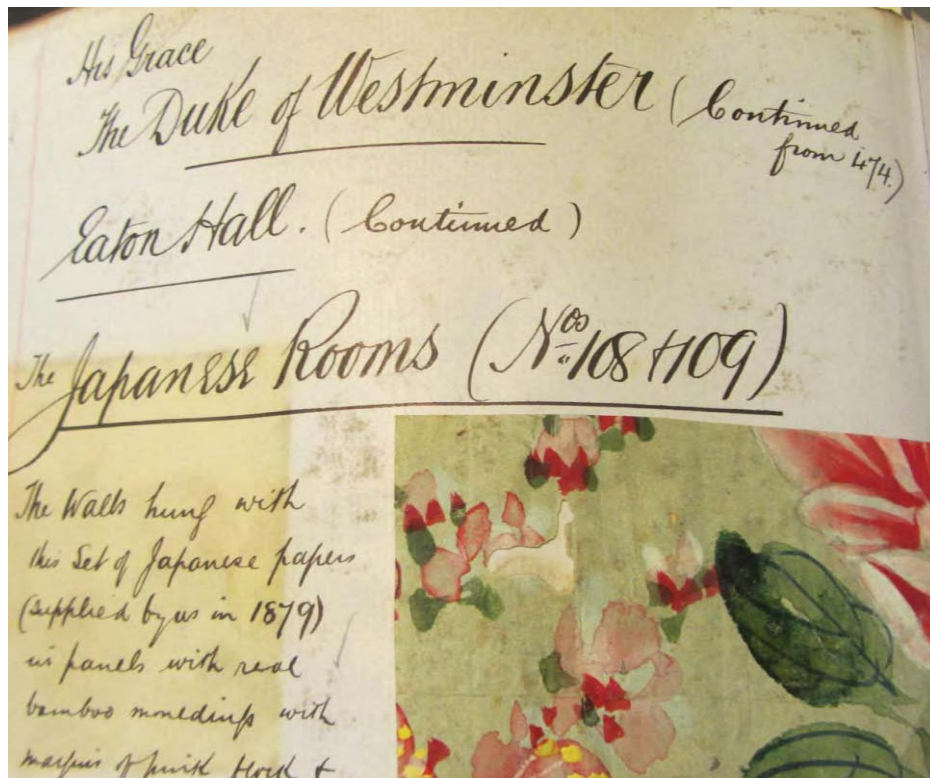 His Grace
The Duke of Westminster (Continued
from 474.)
Eaton Hall. (Continued)
The Japanese Rooms (Nos. 108 + 109)
The Walls hung with
this Set of Japanese papers
(supplied by us in 1879)
in panels with real
bamboo mouldings with
margins of pink flock +